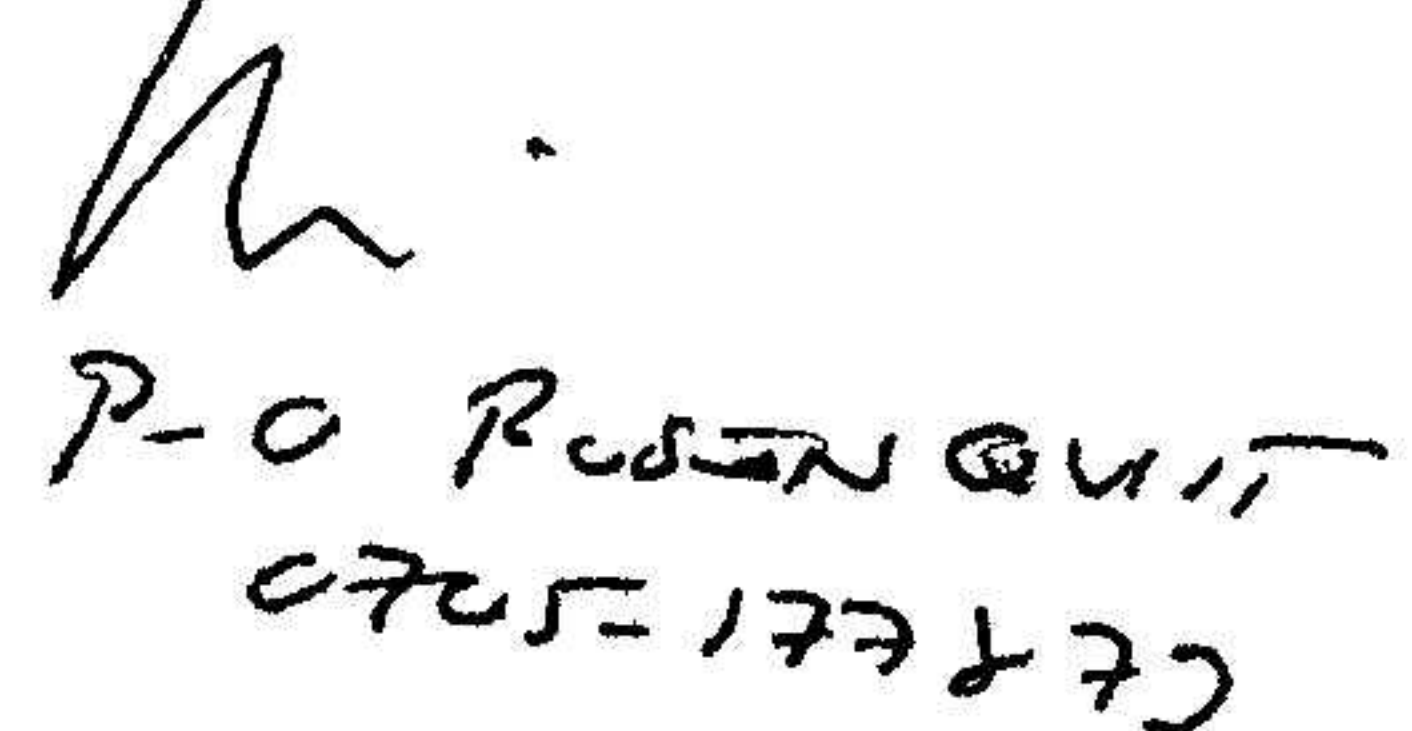 P-O ROSENQUIST
0705-177872